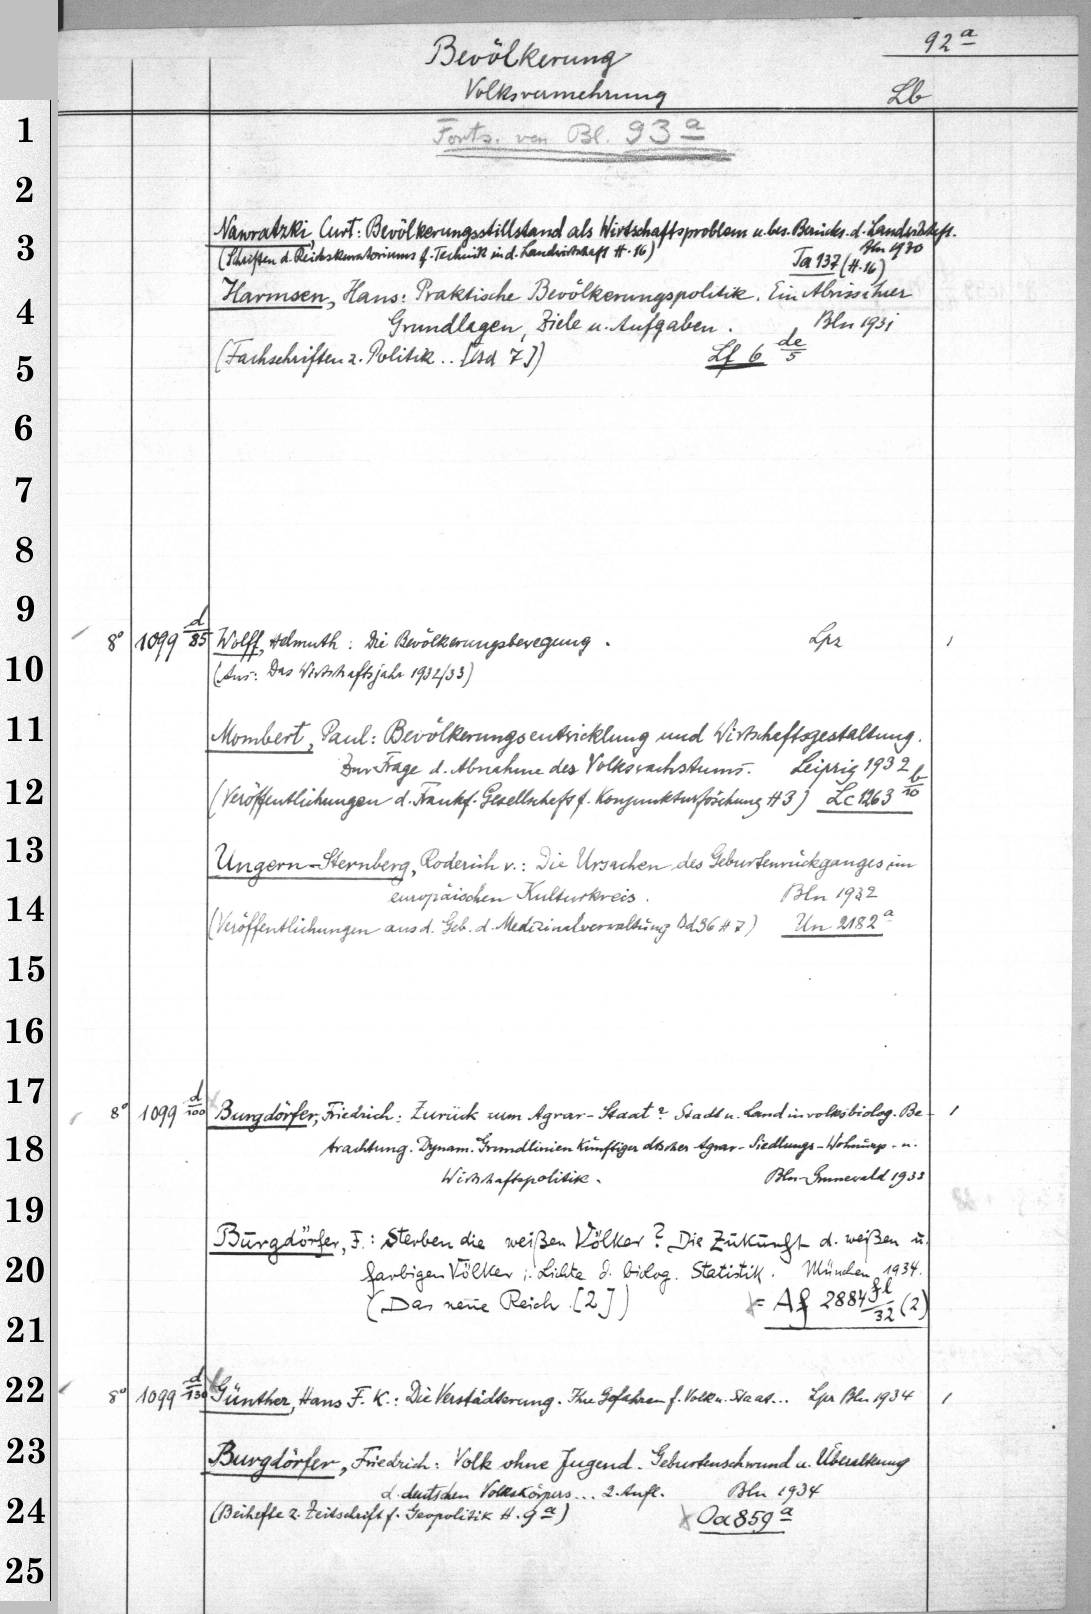 92 a
Bevölkerung
Volksvermehrung
Lb
Forts. von Bl. 93 a
1
2
3
4
5
6
7
8
9
10
11
12
13
14
15
16
17
18
19
20
21
22
23
24
25
Nawratzki, Curt: Bevölkerungsstillstand als Wirtschaftsproblem u. bes. Berücks. d. Landwirtschft.
(Schriften d. Reichskuratoriums f. Technik in d. Landwirtschaft H. 16) Bln 1930
Ta 137 (H. 16)
Harmsen, Hans: Praktische Bevölkerungspolitik. Ein Abriss ihrer
Grundlagen, Ziele u. Aufgaben. Bln 1931
(Fachschriften z. Politik .. [Bd 7]) Lf 6 de/5
8° 1099 d/85 Wolff, Helmuth: Die Bevölkerungsbewegung. Lpz 1
(Aus: Das Wirtschaftsjahr 1932/33)
Mombert, Paul: Bevölkerungsentwicklung und Wirtschaftsgestaltung.
Zur Frage d. Abnahme des Volkswachstums. Leipzig 1932
(Veröffentlichungen d. Frankf. Gesellschaft f. Konjunkturforschung H 3) Lc 1263 b/10
Ungern-Sternberg, Roderich v.: Die Ursachen des Geburtenrückganges im
europäischen Kulturkreis. Bln 1932
(Veröffentlichungen aus d. Geb. d. Medizinalverwaltung Bd 36 H 7) Un 2182 a
8° 1099 d/100 Burgdörfer, Friedrich: Zurück zum Agrar-Staat? Stadt u. Land in volksbiolog. Be- 1
trachtung. Dynam. Grundlinien künftiger dtscher Agrar- Siedlungs- Wohnungs- u.
Wirtschaftspolitik. Bln-Grunewald 1933
Burgdörfer, F.: Sterben die weißen Völker? Die Zukunft d. weißen u.
farbigen Völker i. Lichte d. biolog. Statistik. München 1934.
(Das neue Reich. [2]) = Af 2884 fl/32 (2)
8° 1099 d/130 Günther, Hans F. K.: Die Verstädterung. Ihre Gefahren f. Volk u. Staat... Lpz Bln 1934 1
Burgdörfer, Friedrich: Volk ohne Jugend. Geburtenschwund u. Überalterung
d. deutschen Volkskörpers... 2. Aufl. Bln 1934
(Beihefte z. Zeitschrift f. Geopolitik H. 9 a) Oa 859 a